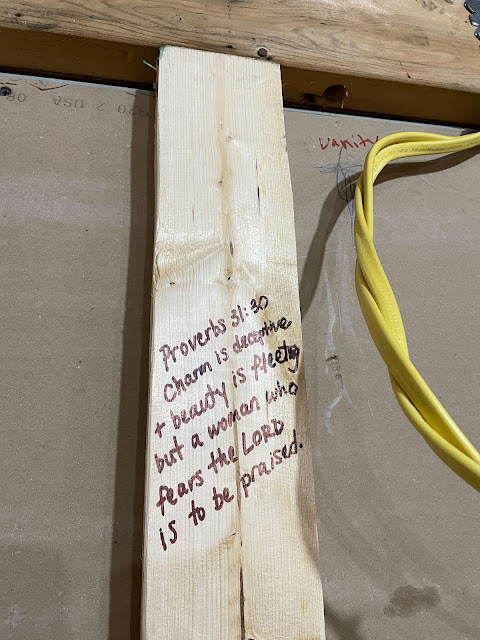 320 2 USA 08
vanity
Proverbs 31:30
Charm is deceptive
+ beauty is fleeting
but a woman who
fears the LORD
is to be praised.